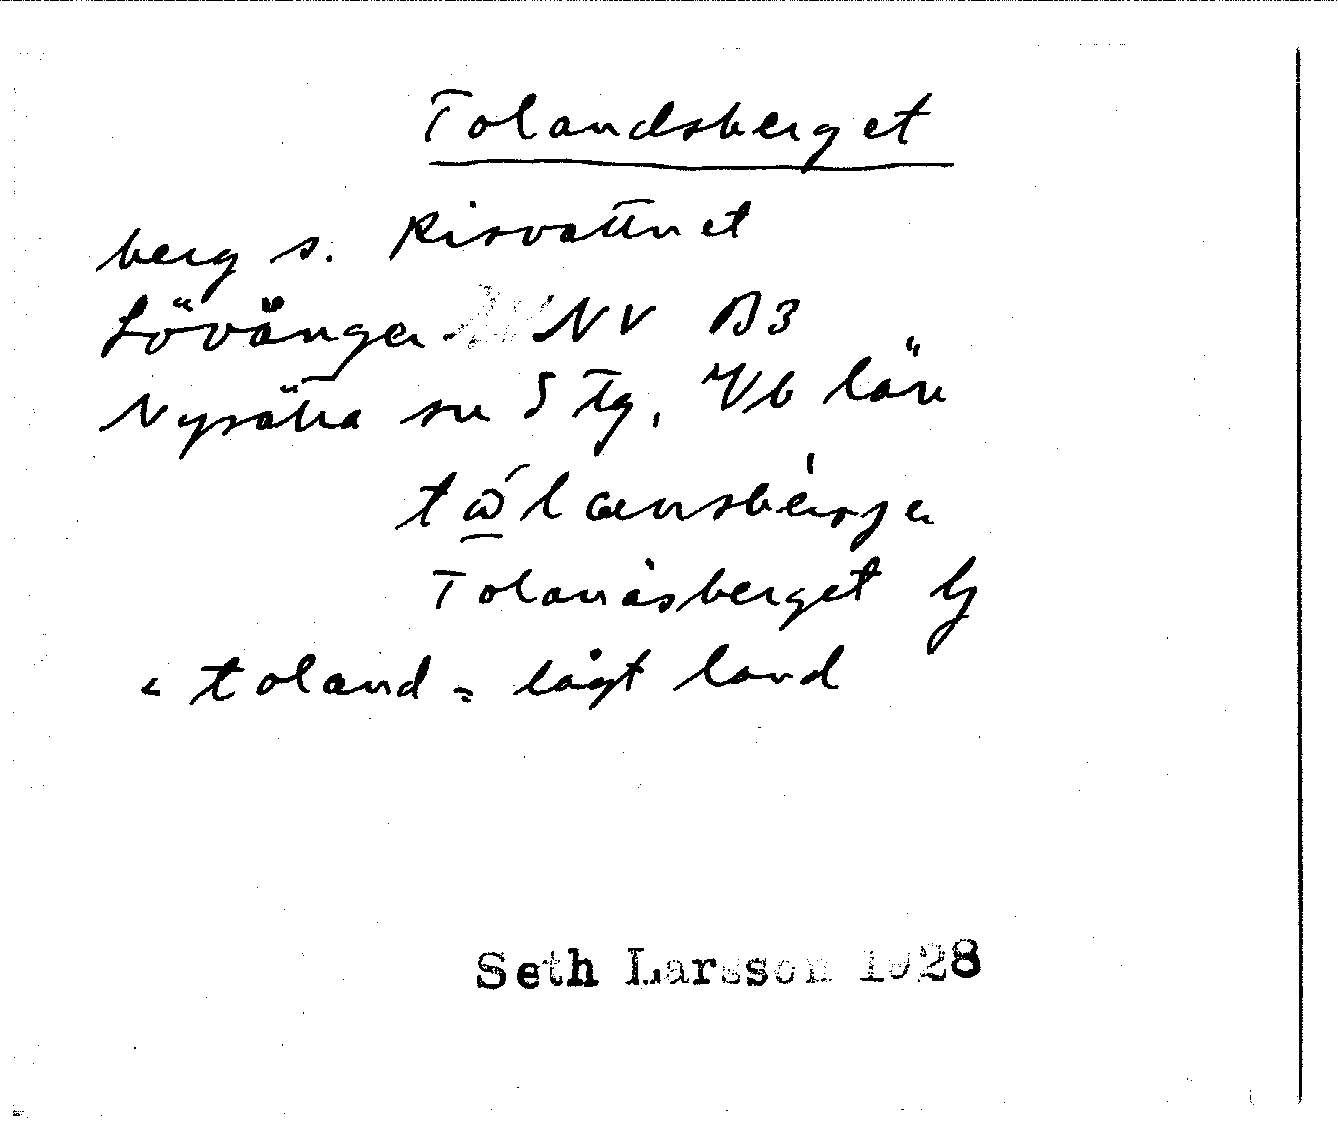 Tolandsberget
berg s. Risvattnet
Lövånger NV B3
Nysätra sn S tg, Vb län
Tolandsberget lj
"toland" lågt land
Seth Larsson 1928